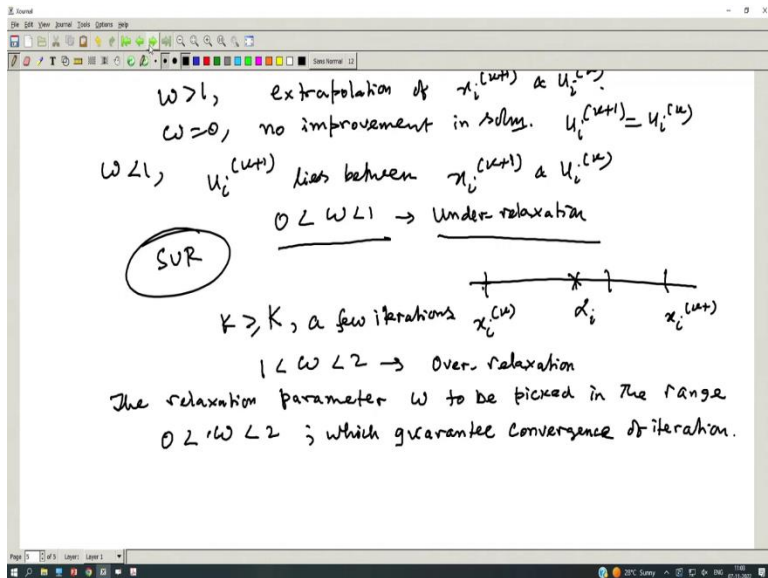 Xournal
File Edit View Journal Tools Options Help
Sans Normal 12
ω>1, extrapolation of x_i^(k+1) & u_i^(k).
ω=0, no improvement in soln. u_i^(k+1) = u_i^(k)
ω<1, u_i^(k+1) lies between x_i^(k+1) & u_i^(k)
0 < ω < 1 → Under-relaxation
SUR
k ≥ K, a few iterations x_i^(k) α_i x_i^(k+1)
1 < ω < 2 → Over-relaxation
The relaxation parameter ω to be picked in the range
0 < ω < 2 ; which guarantee convergence of iteration.
Page 5 of 5 Layer: Layer 1
28°C Sunny ENG 11:05
07-11-2022